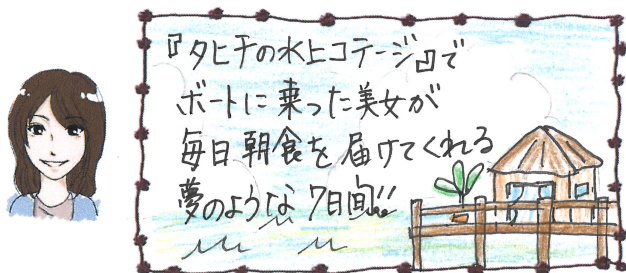 『タヒチの水上コテージ』で
ボートに乗った美女が
毎日朝食を届けてくれる
夢のような7日間!!